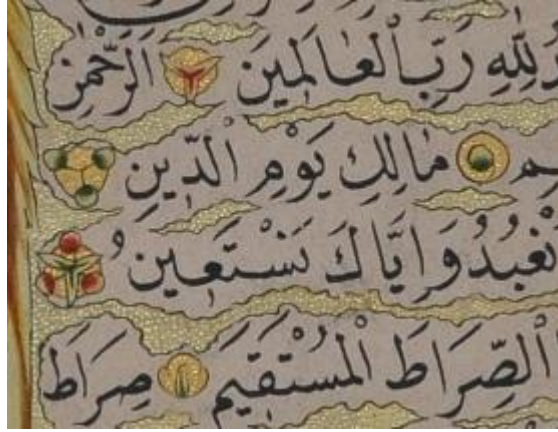 لِلّٰهِ رَبِّ الْعَالَمِينَ الرَّحْمٰنِ
مَالِكِ يَوْمِ الدِّينِ
نَعْبُدُ وَاِيَّاكَ نَسْتَعِينُ
الصِّرَاطَ الْمُسْتَقِيمَ صِرَاطَ